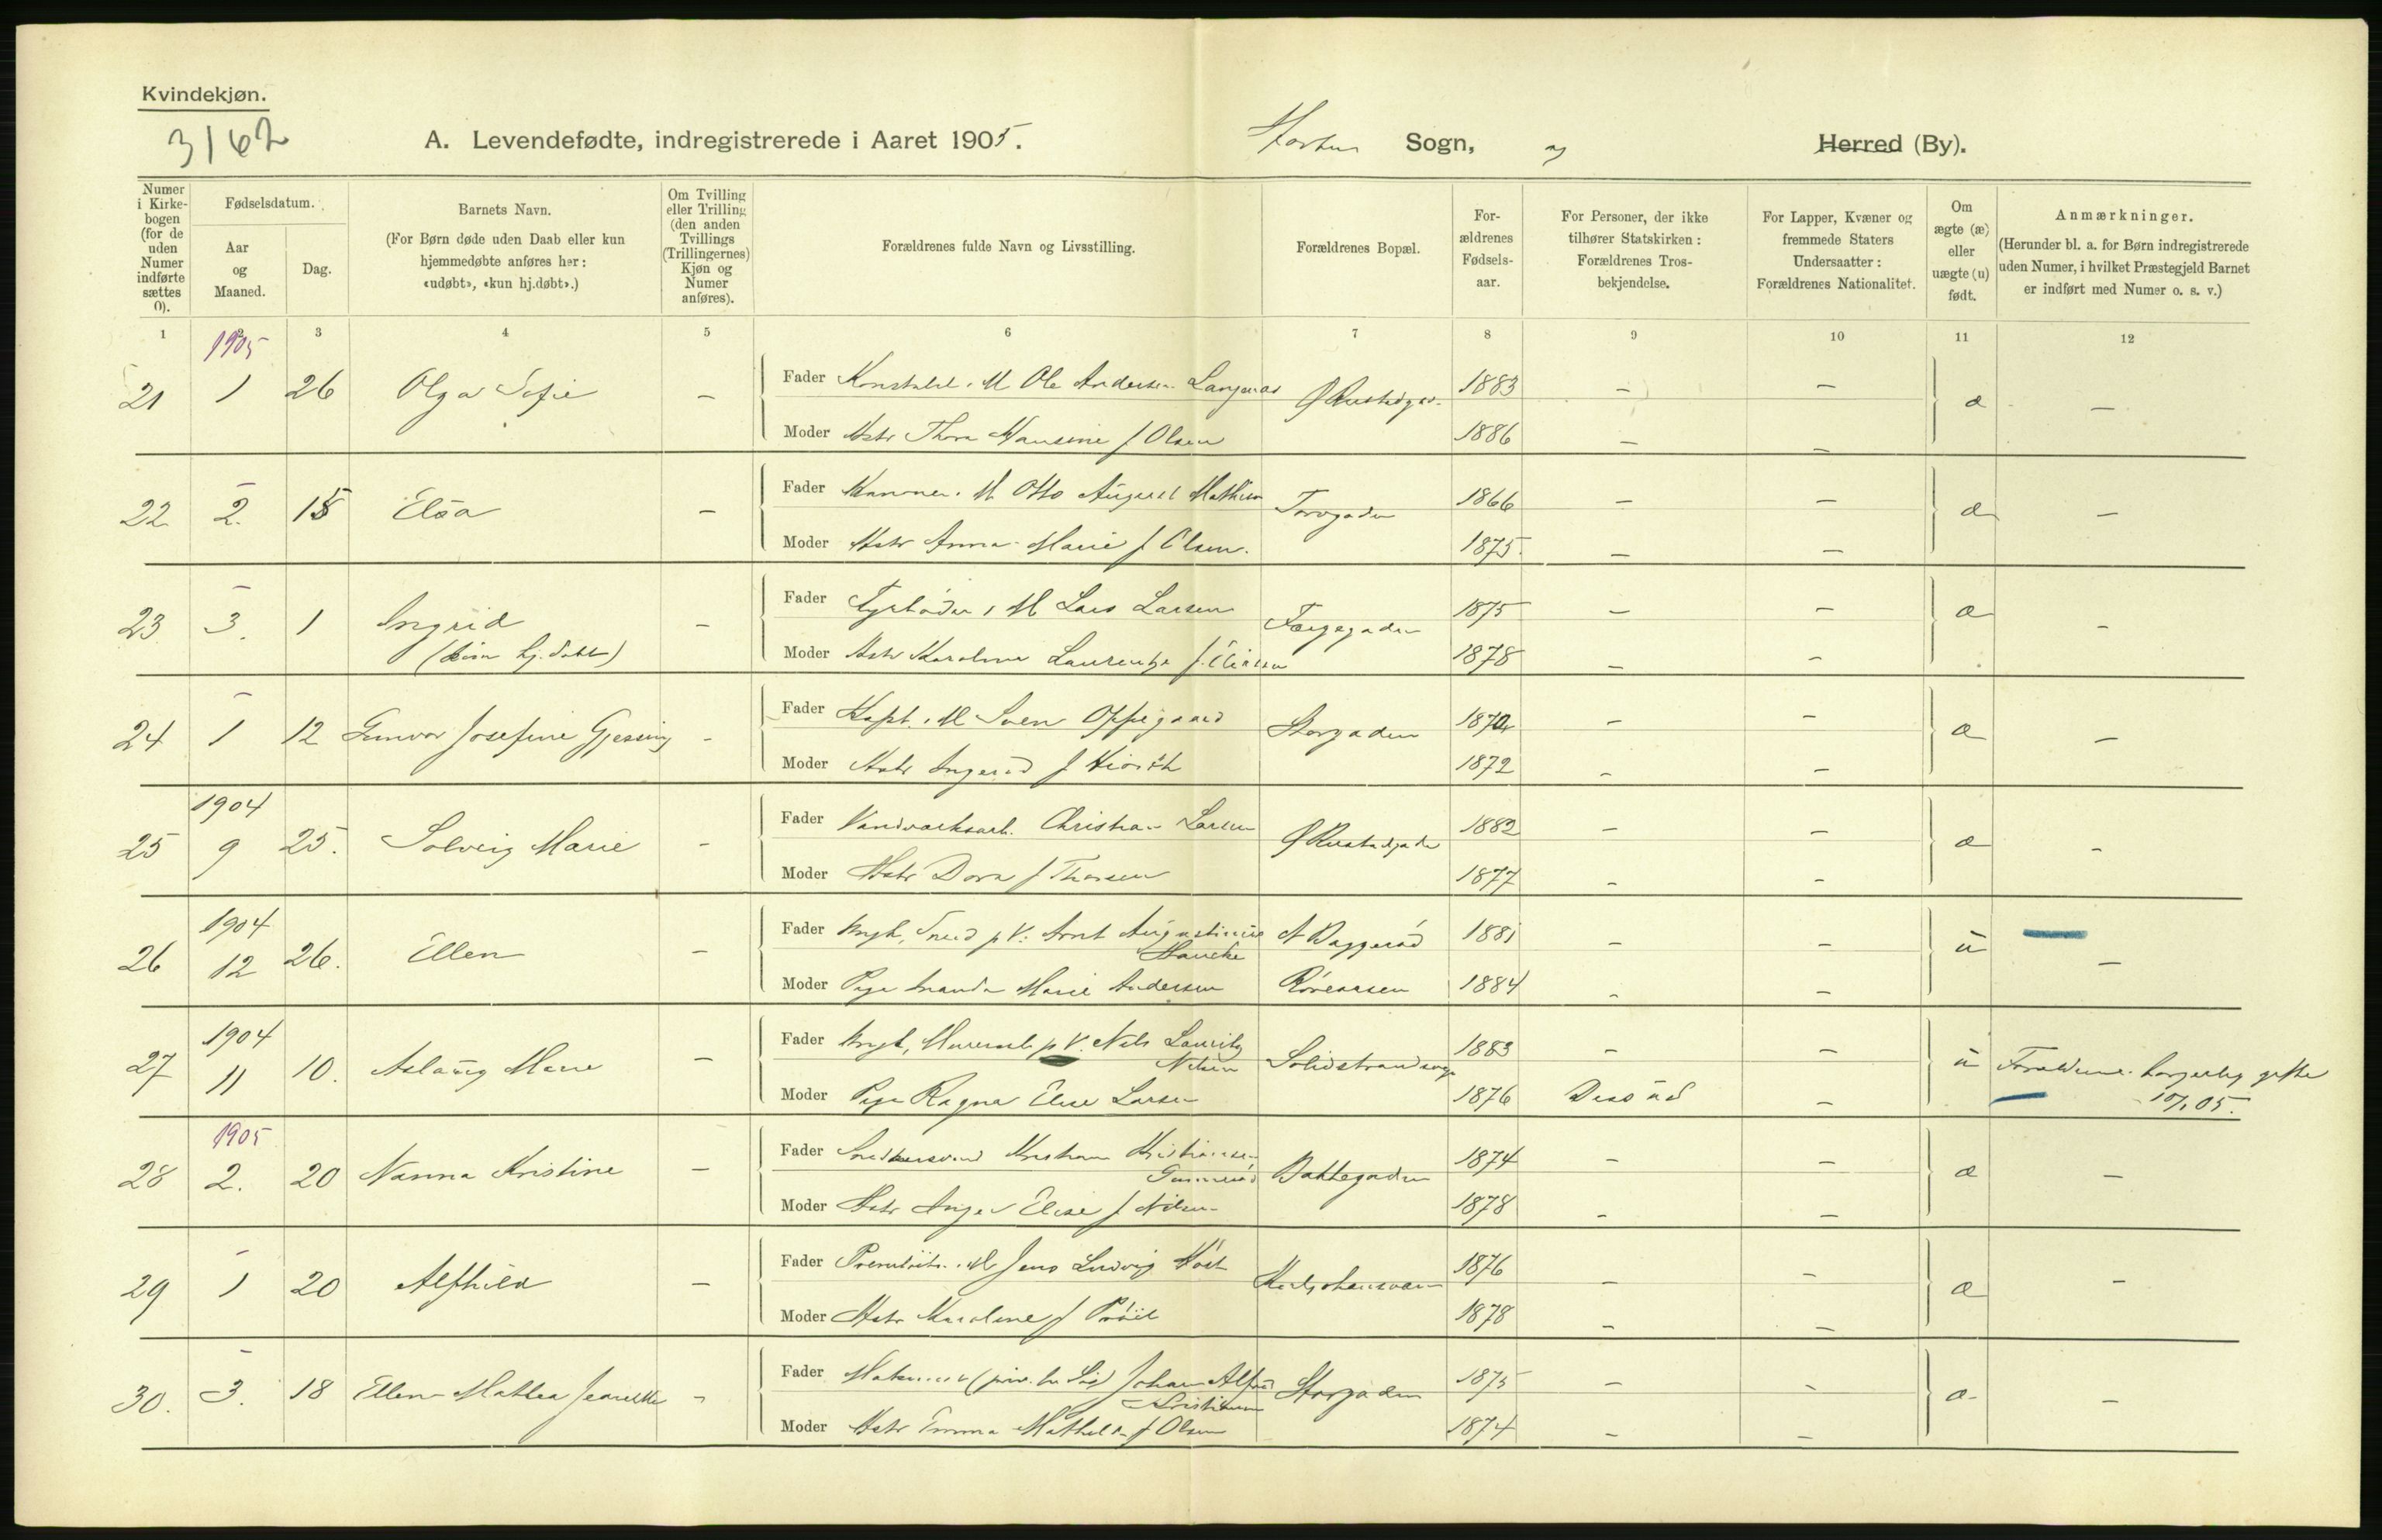 Kvindekjøn.
3162
A. Levendefødte, indregistrerede i Aaret 1905. Horten Sogn, og Herred (By).
Numer i Kirkebogen (for de uden Numer indførte sættes 0).
Fødselsdatum.
Aar og Maaned.
Dag.
Barnets Navn.
(For Børn døde uden Daab eller kun hjemmedøbte anføres her: «udøbt», «kun hj.døbt».)
Om Tvilling eller Trilling (den anden Tvillings (Trillingernes) Kjøn og Numer anføres).
Forældrenes fulde Navn og Livsstilling.
Forældrenes Bopæl.
Forældrenes Fødselsaar.
For Personer, der ikke tilhører Statskirken: Forældrenes Trosbekjendelse.
For Lapper, Kvæner og fremmede Staters Undersaatter: Forældrenes Nationalitet.
Om ægte (æ) eller uægte (u) født.
Anmærkninger.
(Herunder bl. a. for Børn indregistrerede uden Numer, i hvilket Præstegjeld Barnet er indført med Numer o. s. v.)
1 2 3 4 5 6 7 8 9 10 11 12
1905
21 1 26 Olga Sofie – Fader Konstabel i M Ole Andersen Langenas Ø Rustadgad. 1883 – – æ –
Moder Hstr Thora Hansine f Olsen 1886 – –
22 2. 15 Elsa – Fader M Otto August Mathisen Torvgaden 1866 – – æ –
Moder Hstr Anna Marie f Olsen. 1875 – –
23 3. 1 Ingrid – Fader Fyrbøder i M Lars Larsen Færgegaden 1875 – – æ –
(kun hj. døbt) Moder Hstr Karoline Laurentze f. 1878 – –
24 1 12 Gunvor Josefine Gjessing – Fader Kapt. i M Sven Oppegaard Storgaden 1870 – – æ –
Moder Hstr Ingerid f Hiorth 1872 – –
1904
25 9 25. Solveig Marie – Fader Vandværksarb. Christian Larsen Ø Rustadgaden 1882 – – æ –
Moder Hstr Dora f Thorsen 1877 – –
1904
26 12 26. Ellen – Fader Ungk, Smed p V. Arnt Augustinius Hancke N Baggerød 1881 – – u –
Moder Pige Marie Andersen Röreaasen 1884 – –
1904
27 11 10. Aslaug Marie – Fader Ungk, p V. Nils Lauritz Nilsen Solistrandsvgn 1883 – – u Forældrene borgerlig gifte
Moder Pige Ragna Elise Larsen 1876 Diss – 05.
1905
28 2. 20 Nanna Kristine – Fader Kristian Kristiansen Bakkegaden 1874 – – æ –
Moder Hstr Inga Elise f Nilsen 1878 – –
29 1 20 Alfhild – Fader Premierløitn. i M Jens Ludvig Høst Karljohansværn 1876 – – æ –
Moder Hstr Karoline f 1878 – –
30. 3. 18 Ellen Mathea Jeanette – Fader Johan Alfred Kristiansen Storgaden 1875 – – æ –
Moder Hstr Emma Mathilde f Olsen 1874 – –